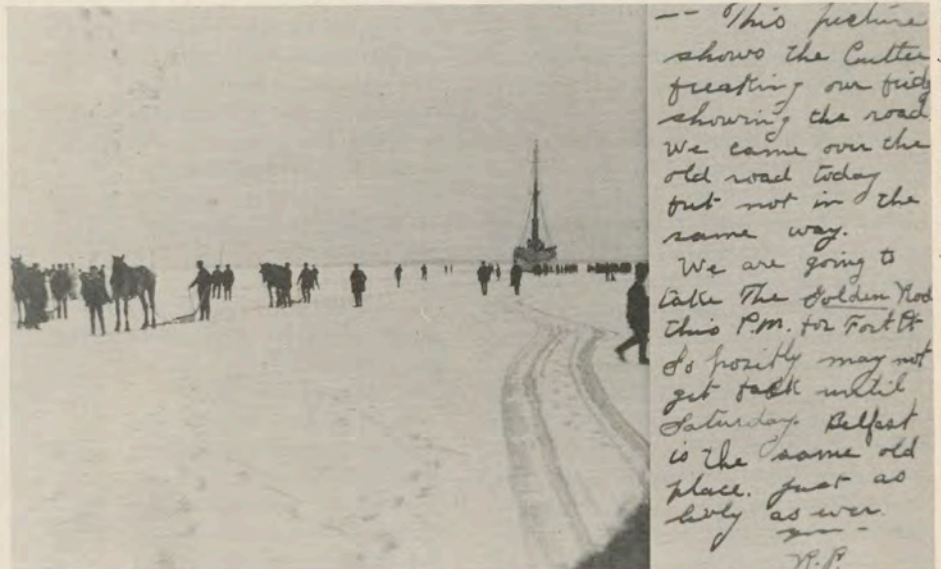 -- This picture
shows the Cutter
breaking our bridg
showing the road.
We came over the
old road today
but not in the
same way.
We are going to
take The Golden Rod
this P.M. for Fort Pt
So posibly may not
get back until
Saturday. Belfast
is the same old
place. Just as
livly as ever.